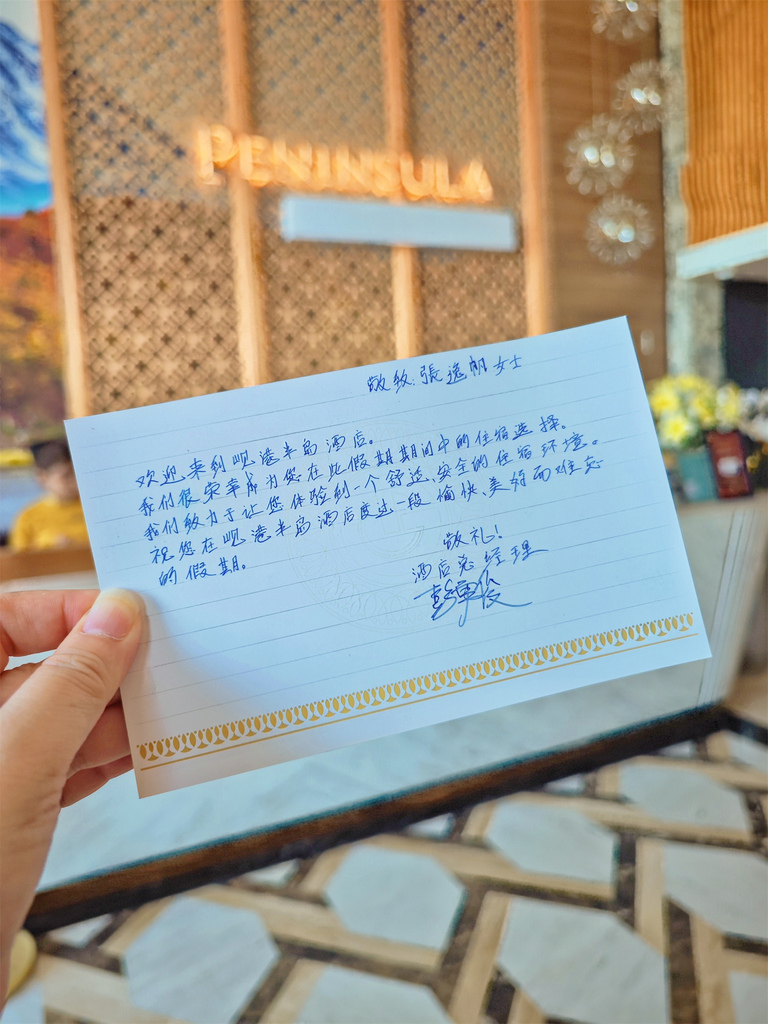 PENINSULA
敬致：張逸帆女士
欢迎来到岘港半岛酒店。
我们很荣幸成为您在此假期期间中的住宿选择。
我们致力于让您体验到一个舒适、安全的住宿环境。
祝您在岘港半岛酒店度过一段愉快、美好而难忘
的假期。
敬礼！
酒店总经理